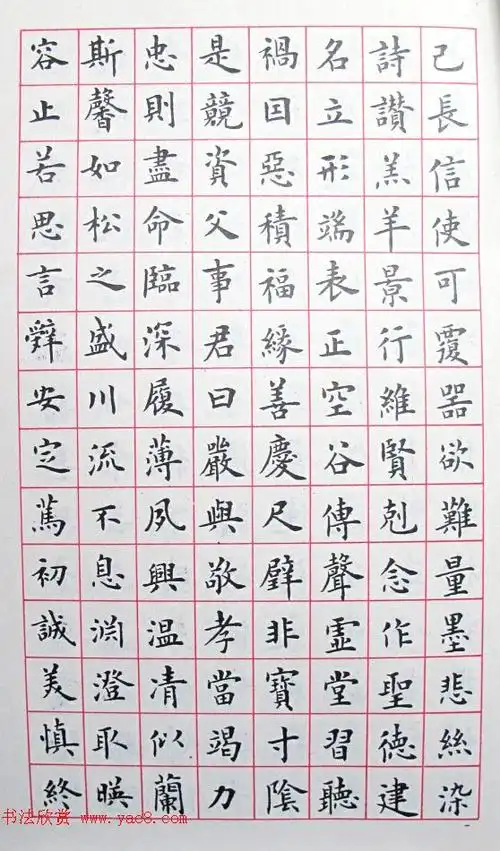 己長信使可覆器欲難量墨悲絲染
詩讃羔羊景行維賢剋念作聖德建
名立形端表正空谷傳聲虛堂習聽
禍因惡積福緣善慶尺璧非寶寸陰
是競資父事君曰嚴與敬孝當竭力
忠則盡命臨深履薄夙興温清似蘭
斯馨如松之盛川流不息渊澄取暎
容止若思言辭安定篤初誠美慎終
书法欣赏 www.yac8.com